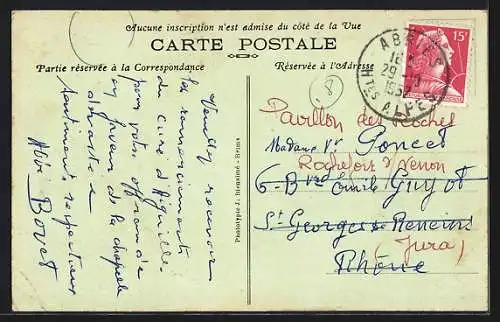 Aucune inscription n'est admise du côté de la Vue
CARTE POSTALE
Partie réservée à la Correspondance
Réservée à l'Adresse
15f
ABRIÈS
29
HTES ALPES
8
Veuillez recevoir
les remerciements
du curé d'Aiguilles
pour votre offrande
en faveur de la chapelle
Sentiments respectueux
Abbé Bovet
Phototypie J. Bienaimé - Reims
Pavillon des Roches
Madame Vve Poncet
Rochefort s/ Nenon
6 - Bvd Emile Guyot
St Georges de Reneins
(Jura)
Rhône